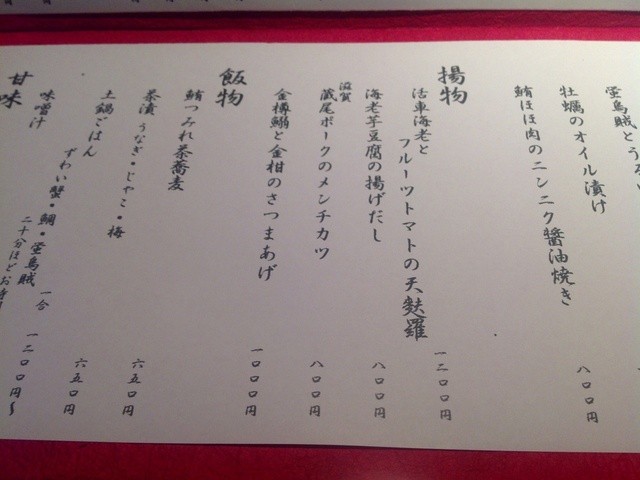 螢烏賊とう
牡蠣のオイル漬け
鮪ほほ肉のニンニク醤油焼き 八〇〇円
揚物
活車海老と
フルーツトマトの天麩羅 一二〇〇円
海老芋豆腐の揚げだし 八〇〇円
滋賀
蔵尾ポークのメンチカツ 八〇〇円
金樽鰯と金柑のさつまあげ 一〇〇〇円
飯物
鮪つみれ茶蕎麦 六五〇円
茶漬 うなぎ・じゃこ・梅 六五〇円
土鍋ごはん
ずわい蟹・鯛・螢烏賊 一合 一二〇〇円〜
二十分ほどお
味噌汁
甘味